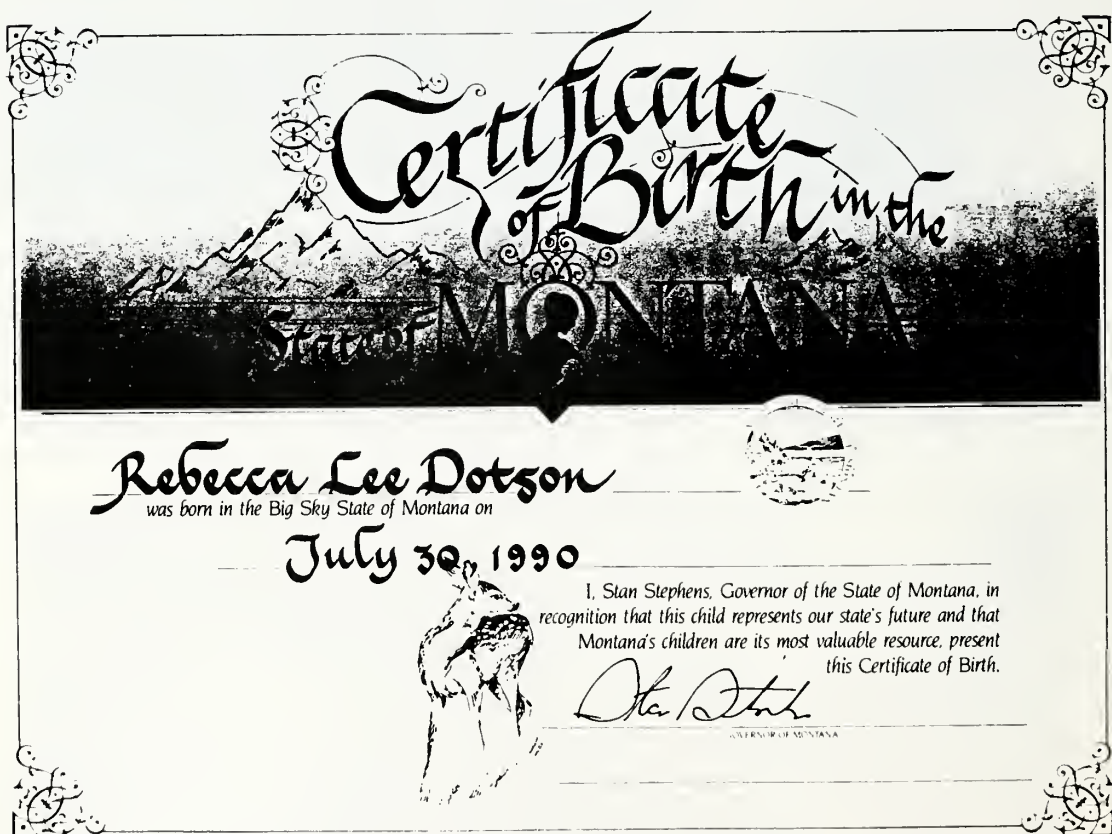 Certificate
of Birth in the
State of MONTANA
Rebecca Lee Dotson
was born in the Big Sky State of Montana on
July 30, 1990
I, Stan Stephens, Governor of the State of Montana, in
recognition that this child represents our state's future and that
Montana's children are its most valuable resource, present
this Certificate of Birth.
GOVERNOR OF MONTANA